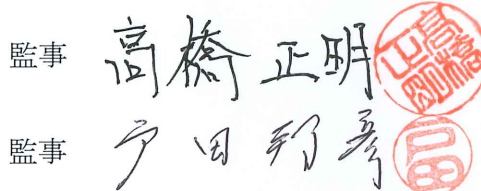 監事 高橋正明
監事 戸田邦彦